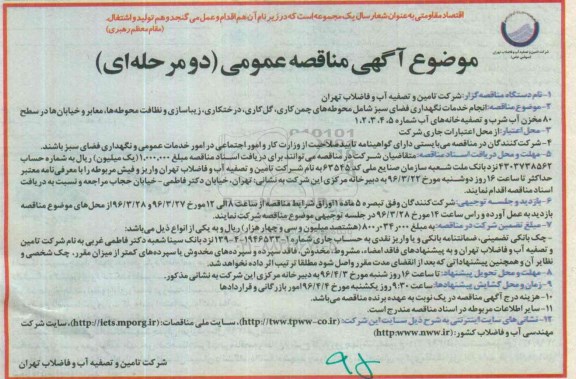 اقتصاد مقاومتی به عنوان شعار سال یک مجموعه است که در زیر نام آن هم اقدام و عمل می گنجد و هم تولید و اشتغال.
(مقام معظم رهبری)
موضوع آگهی مناقصه عمومی (دو مرحله ای)
۱- نام دستگاه مناقصه گزار: شرکت تامین و تصفیه آب و فاضلاب تهران
۲- موضوع مناقصه: انجام خدمات نگهداری فضای سبز شامل محوطه های چمن کاری، گل کاری، درختکاری، زیباسازی و نظافت محوطه ها، معابر و خیابان ها در سطح
۸۰ مخزن آب شرب و تصفیه خانه های آب شماره ۱،۲،۳،۴،۵
۳- محل اعتبار: از محل اعتبارات جاری شرکت
۴- شرکت کنندگان در مناقصه می بایستی دارای گواهینامه تایید صلاحیت از وزارت کار و امور اجتماعی در امور خدمات عمومی و نگهداری فضای سبز باشند.
۵- مهلت و محل دریافت اسناد مناقصه: متقاضیان شرکت در مناقصه می توانند برای دریافت اسناد مناقصه مبلغ ۱,۰۰۰,۰۰۰ (یک میلیون) ریال به شماره حساب
۴۳۰۲۷۳۸۵۶۲ نزد بانک ملت شعبه سازمان صنایع ملی کد ۶۳۵۴۵ به نام شرکت تامین و تصفیه آب و فاضلاب تهران واریز و فیش مربوطه را با معرفی نامه معتبر
حداکثر تا ساعت ۱۶ روز دوشنبه مورخ ۹۶/۳/۲۲ به دبیرخانه مرکزی این شرکت به نشانی: تهران، خیابان دکتر فاطمی - خیابان حجاب مراجعه و نسبت به دریافت
اسناد مناقصه اقدام نمایند.
۶- بازدید و جلسه توجیهی: شرکت کنندگان وفق تبصره ۵ ماده ۱ اوراق شرایط مناقصه از ساعت ۸ الی ۱۲ مورخ ۹۶/۳/۲۷ و ۹۶/۳/۲۸ از محل های موضوع مناقصه
بازدید به عمل آورده و راس ساعت ۱۴ مورخ ۹۶/۳/۲۸ در جلسه توجیهی موضوع مناقصه شرکت نمایند.
۷- مبلغ تضمین شرکت در مناقصه: به مبلغ ۸۰۰,۰۳۴,۰۰۰ (هشتصد میلیون و سی و چهار هزار) ریال و به یکی از انواع ذیل می باشد:
- چک بانکی تضمینی، ضمانتنامه بانکی و یا واریز نقدی به حساب جاری شماره نزد بانک سینا شعبه دکتر فاطمی غربی به نام شرکت تامین
و تصفیه آب و فاضلاب تهران و به پیشنهادهای فاقد امضاء، مشروط، مخدوش، فاقد سپرده و سپرده های مخدوش یا سپرده های کمتر از میزان مقرر، چک شخصی و
نظایر آن و همچنین پیشنهاداتی که بعد از انقضای مدت مقرر واصل شود مطلقا ترتیب اثر داده نخواهد شد.
۸- مهلت و محل تحویل پیشنهادها: تا ساعت ۱۶ روز شنبه مورخ ۹۶/۴/۳ به دبیرخانه مرکزی این شرکت به نشانی مذکور.
۹- زمان و محل گشایش پیشنهادها: ساعت ۹:۳۰ روز یکشنبه مورخ ۹۶/۴/۴ امور بازرگانی و قراردادها
۱۰- هزینه درج آگهی مناقصه در یک نوبت به عهده برنده مناقصه می باشد.
۱۱- سایر اطلاعات مربوطه در اسناد مناقصه مندرج است.
۱۲- نشانی های سایت اینترنتی به شرح ذیل سایت این شرکت: (http://tww.tpww-co.ir)، سایت ملی مناقصات: (http://iets.mporg.ir)، سایت شرکت
مهندسی آب و فاضلاب کشور: (http:www.nww.ir)
شرکت تامین و تصفیه آب و فاضلاب تهران